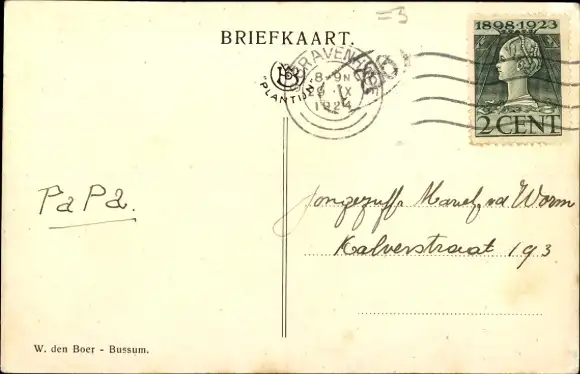 =3
BRIEFKAART.
1898-1923
2 CENT
'S GRAVENHAGE
8-9N
29 IX
1924
"PLANTIJN"
PaPa.
v.d Worm
Kalverstraat 193
W. den Boer - Bussum.